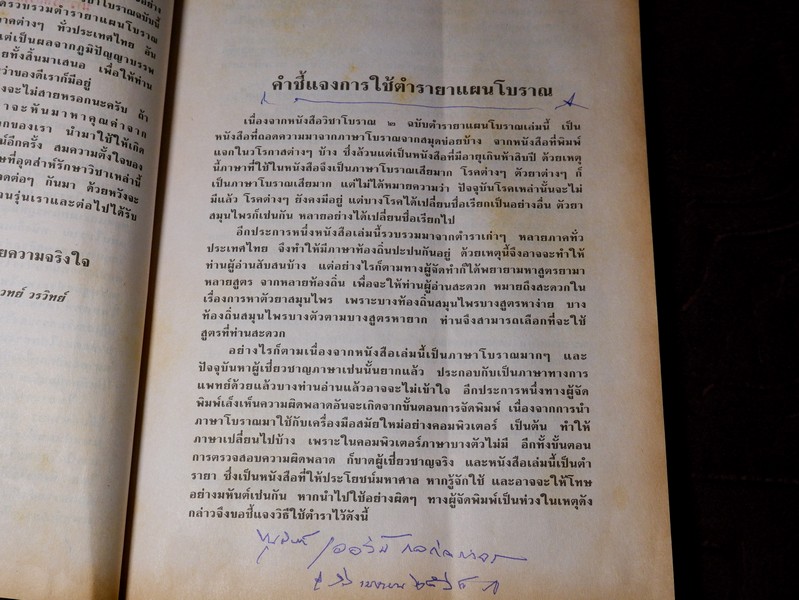 อย่าง
ยาโบราณฉบับนี้
รวบรวมตำรายาแผนโบราณ
ต่างๆ ทั่วประเทศไทย อัน
แต่เป็นผลจากภูมิปัญญาบรรพ
ทั้งสิ้นมาเสนอ เพื่อให้ท่าน
ว่าของดีเราก็มีอยู่
จะไม่สายหรอกนะครับ ถ้า
จะหันมาหาคุณค่าจาก
ของเรา นำมาใช้ให้เกิด
อีกครั้ง สมความตั้งใจของ
ที่อุตส่าห์รักษาวิชาเหล่านี้
ต่อๆ กันมา ด้วยหวังจะ
รุ่นเราและต่อไปได้รับ
ความจริงใจ
วรวิทย์
คำชี้แจงการใช้ตำรายาแผนโบราณ
เนื่องจากหนังสือวิชาโบราณ ๒ ฉบับตำรายาแผนโบราณเล่มนี้ เป็น
หนังสือที่ถอดความมาจากภาษาโบราณจากสมุดข่อยบ้าง จากหนังสือที่พิมพ์
แจกในวโรกาสต่างๆ บ้าง ซึ่งล้วนแต่เป็นหนังสือที่มีอายุเกินห้าสิบปี ด้วยเหตุ
นี้ภาษาที่ใช้ในหนังสือจึงเป็นภาษาโบราณเสียมาก โรคต่างๆ ตัวยาต่างๆ ก็
เป็นภาษาโบราณเสียมาก แต่ไม่ได้หมายความว่า ปัจจุบันโรคเหล่านั้นจะไม่
มีแล้ว โรคต่างๆ ยังคงมีอยู่ แต่บางโรคได้เปลี่ยนชื่อเรียกเป็นอย่างอื่น ตัวยา
สมุนไพรก็เช่นกัน หลายอย่างได้เปลี่ยนชื่อเรียกไป
อีกประการหนึ่งหนังสือเล่มนี้รวบรวมมาจากตำราเก่าๆ หลายภาคทั่ว
ประเทศไทย จึงทำให้มีภาษาท้องถิ่นปะปนกันอยู่ ด้วยเหตุนี้จึงอาจจะทำให้
ท่านผู้อ่านสับสนบ้าง แต่อย่างไรก็ตามทางผู้จัดทำก็ได้พยายามหาสูตรยามา
หลายสูตร จากหลายท้องถิ่น เพื่อจะให้ท่านผู้อ่านสะดวก หมายถึงสะดวกใน
เรื่องการหาตัวยาสมุนไพร เพราะบางท้องถิ่นสมุนไพรบางสูตรหาง่าย บาง
ท้องถิ่นสมุนไพรบางตัวตามบางสูตรหายาก ท่านจึงสามารถเลือกที่จะใช้
สูตรที่ท่านสะดวก
อย่างไรก็ตามเนื่องจากหนังสือเล่มนี้เป็นภาษาโบราณมากๆ และ
ปัจจุบันหาผู้เชี่ยวชาญภาษาเช่นนั้นยากแล้ว ประกอบกับเป็นภาษาทางการ
แพทย์ด้วยแล้วบางท่านอ่านแล้วอาจจะไม่เข้าใจ อีกประการหนึ่งทางผู้จัด
พิมพ์เล็งเห็นความผิดพลาดอันจะเกิดจากขั้นตอนการจัดพิมพ์ เนื่องจากการนำ
ภาษาโบราณมาใช้กับเครื่องมือสมัยใหม่อย่างคอมพิวเตอร์ เป็นต้น ทำให้
ภาษาเปลี่ยนไปบ้าง เพราะในคอมพิวเตอร์ภาษาบางตัวไม่มี อีกทั้งขั้นตอน
การตรวจสอบความผิดพลาด ก็ขาดผู้เชี่ยวชาญจริง และหนังสือเล่มนี้เป็นตำ
รายา ซึ่งเป็นหนังสือที่ให้ประโยชน์มหาศาล หากรู้จักใช้ และอาจจะให้โทษ
อย่างมหันต์เช่นกัน หากนำไปใช้อย่างผิดๆ ทางผู้จัดพิมพ์เป็นห่วงในเหตุดัง
กล่าวจึงขอชี้แจงวิธีใช้ตำราไว้ดังนี้